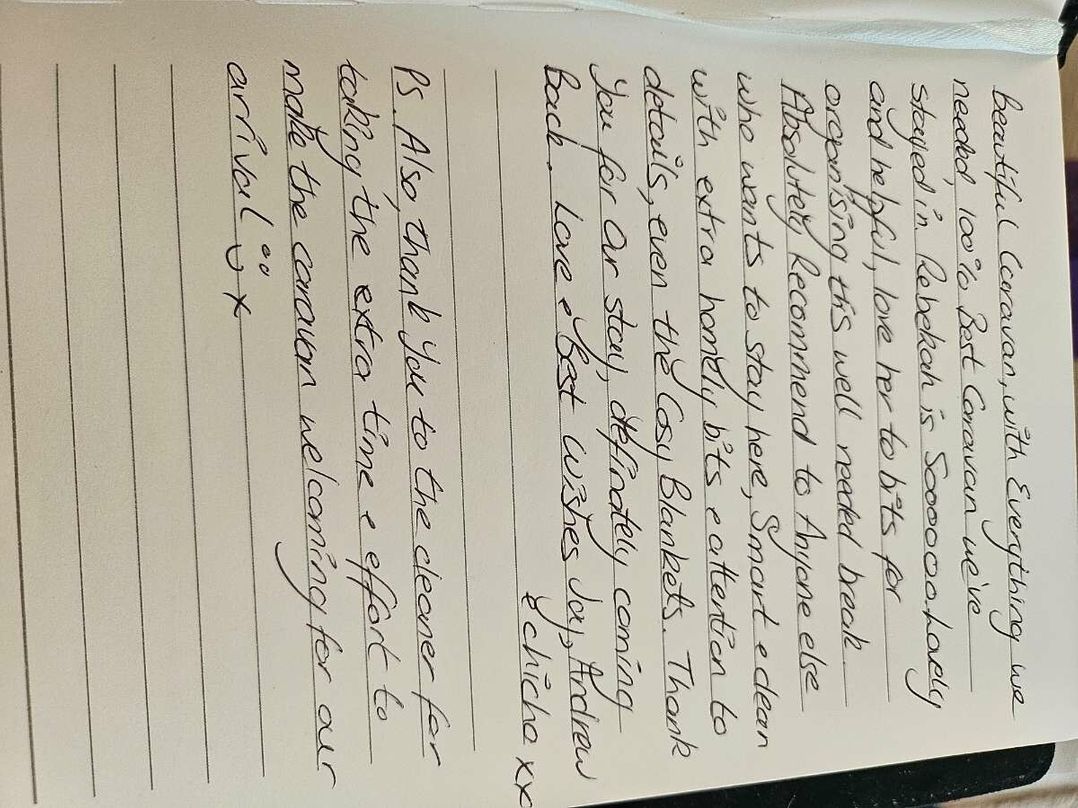 beautiful Caravan, with Everything we
needed, 100% Best Caravan we've
stayed in. Rebekah is Soooooo Lovely
and helpful, love her to bits for
organising this well needed break
Absolutely Recommend to Anyone else
who wants to stay here, Smart & clean
with extra homely bits & attention to
details, even the Cosy Blankets. Thank
You for Our stay, definately coming
back. Love & Best Wishes Joy, Andrew
& chicha xx
PS. Also, thank you to the cleaner for
taking the extra time & effort to
make the caravan welcoming for our
arrival x